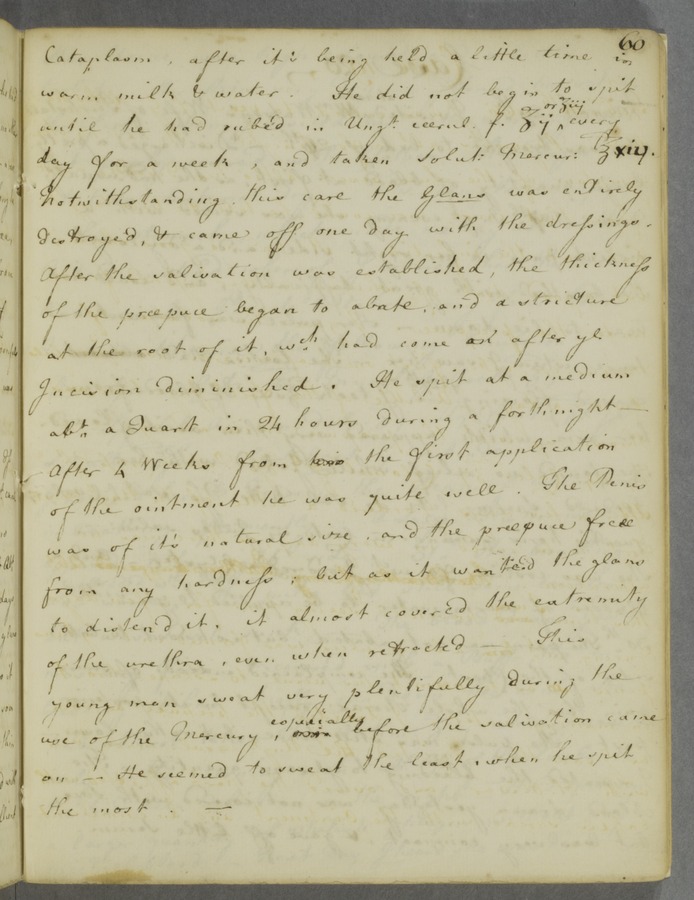 60
Cataplasm, after it's being held a little time in
warm milk & water. He did not begin to spit
until he had rubed in Ungt. cœrul. f. ʒij ^ or ʒiij every
day for a week, and taken Solut: Mercur: ℥xiij.
Notwithstanding this care the Glans was entirely
destroyed, & came off one day with the dressings.
After the salivation was established, the thickness
of the præpuce began to abate, and a stricture
at the root of it, wch had come on after ye
Incision diminished. He spit at a medium
abt a Quart in 24 hours during a forthnight —
After 4 Weeks from the first application
of the ointment he was quite well. The Penis
was of it's natural size, and the præpuce free
from any hardness; but as it wanted the glans
to distend it, it almost covered the extremity
of the urethra, even when retracted — This
young man sweat very plentifully during the
use of the Mercury, especially before the salivation came
on — He seemed to sweat the least when he spit
the most. —